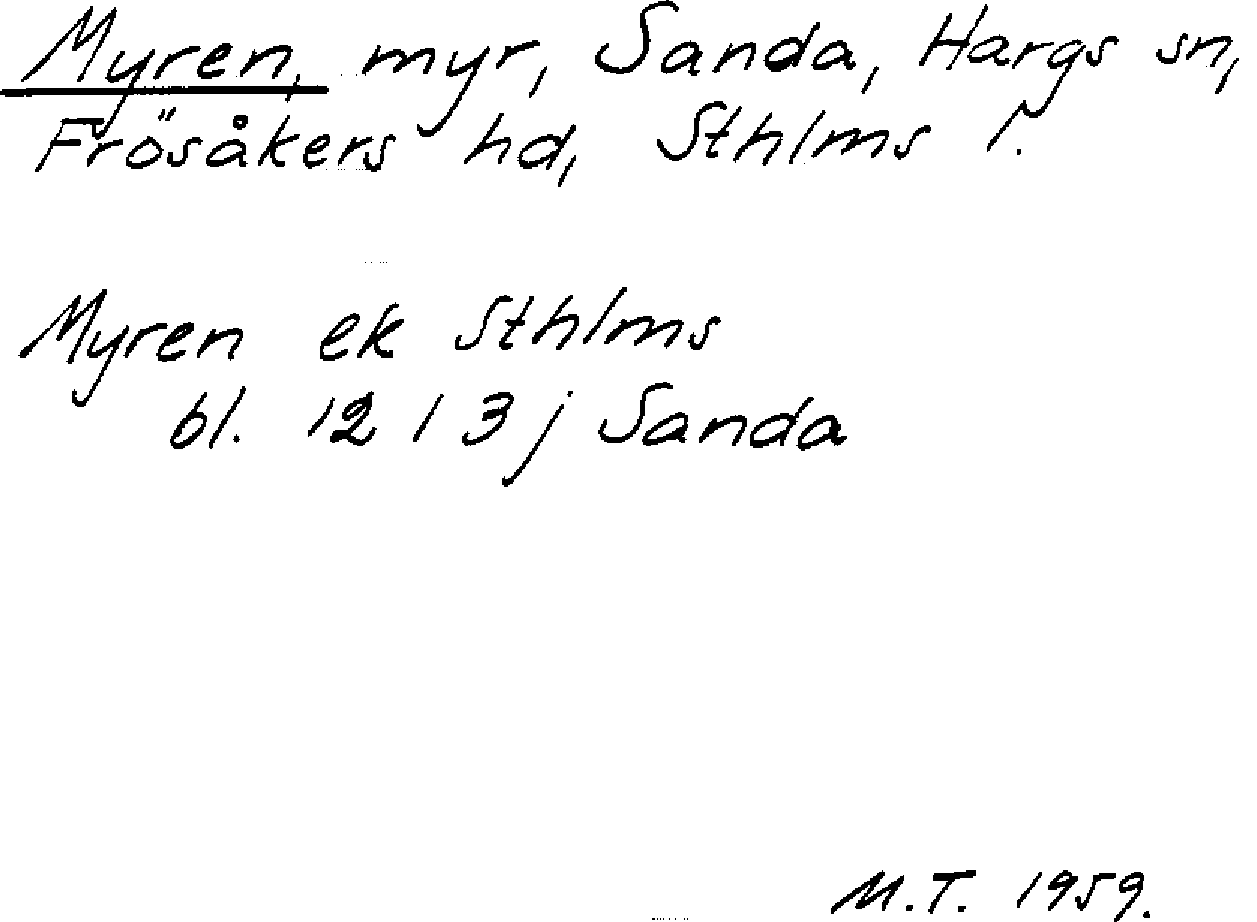 Myren, myr, Sanda, Hargs sn,
Frösåkers hd, Sthlms l.
Myren ek Sthlms
bl. 12 I 3 j Sanda
M.T. 1959.